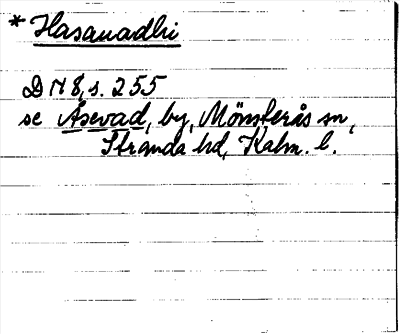 * Hasauadhi
DN 8, s. 255
se Åsevad, by, Mönsterås sn,
Stranda hd, Kalm. l.